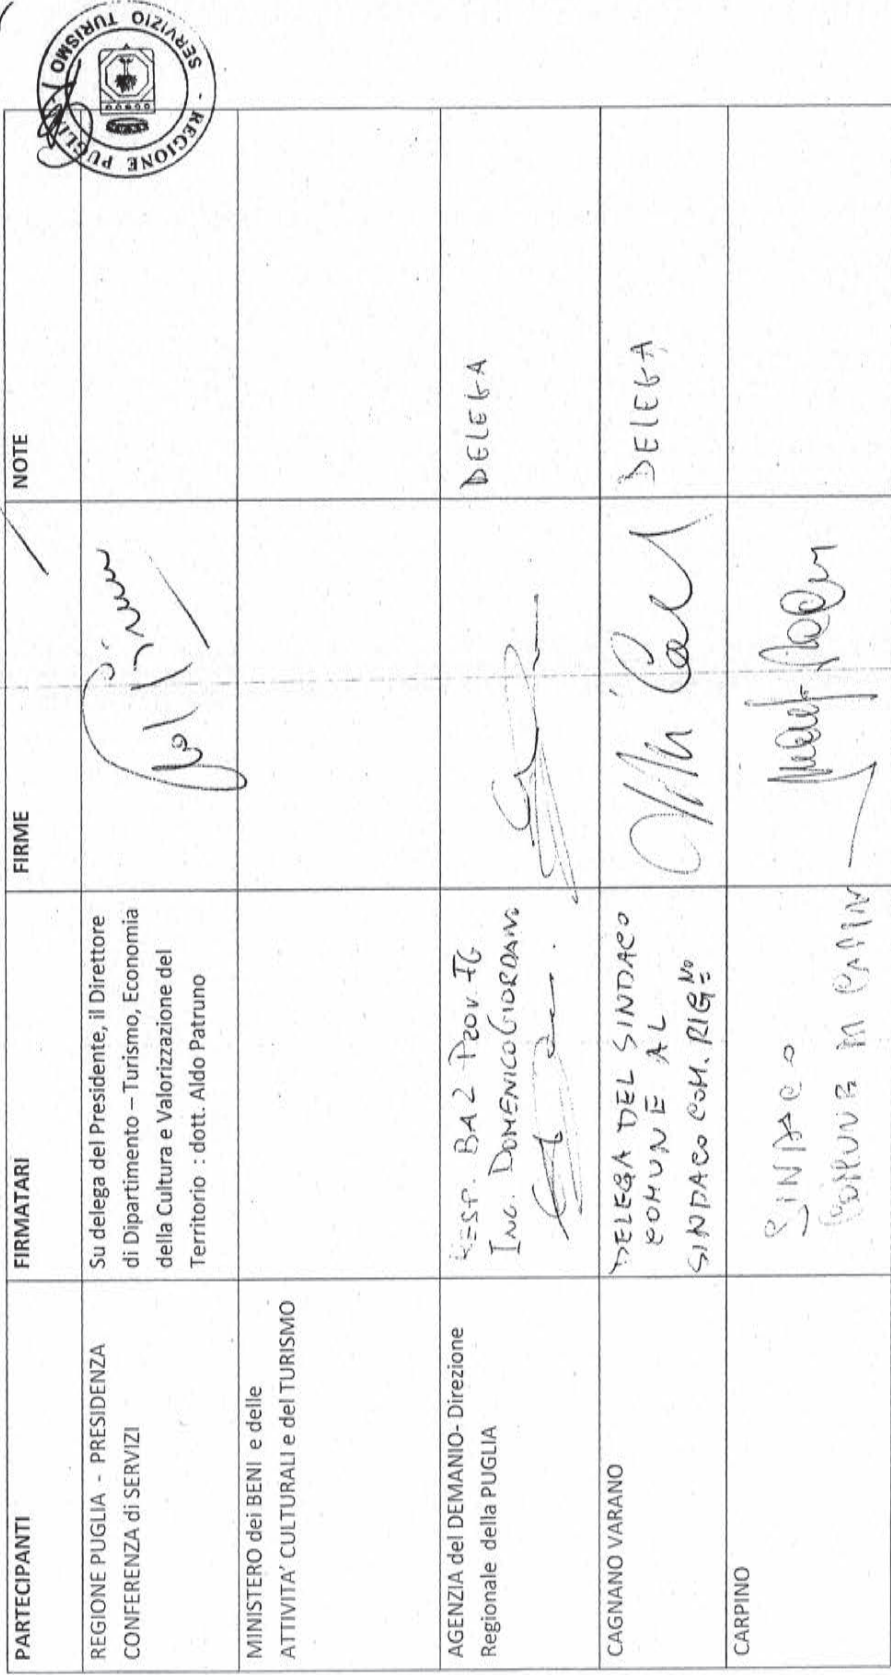 REGIONE PUGLIA - SERVIZIO TURISMO
PARTECIPANTI
FIRMATARI
FIRME
NOTE
REGIONE PUGLIA - PRESIDENZA
CONFERENZA di SERVIZI
Su delega del Presidente, il Direttore
di Dipartimento – Turismo, Economia
della Cultura e Valorizzazione del
Territorio : dott. Aldo Patruno
MINISTERO dei BENI e delle
ATTIVITA' CULTURALI e del TURISMO
AGENZIA del DEMANIO- Direzione
Regionale della PUGLIA
RESP. BA2 PROV. FG
ING. DOMENICO GIORDANO
DELEGA
CAGNANO VARANO
DELEGA DEL SINDACO
COMUNE AL
SINDACO COM. RIG.NO
DELEGA
CARPINO
SINDACO
COMUNE DI